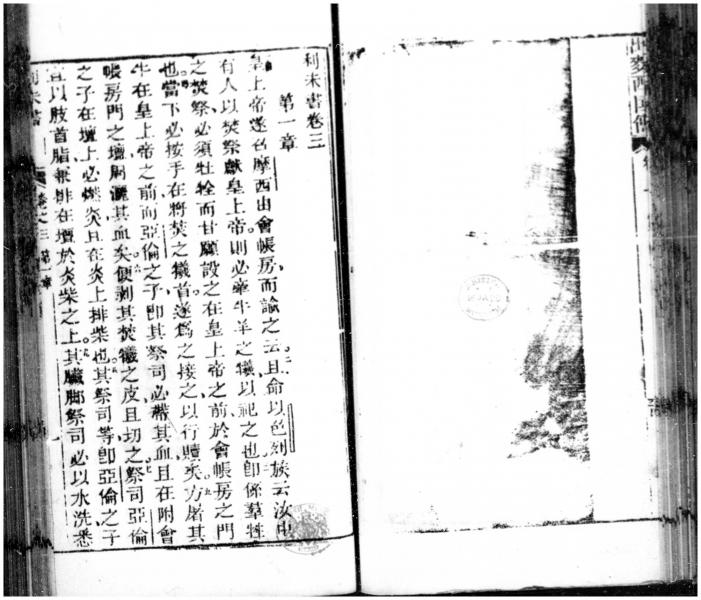 利未書卷三
第一章
皇上帝遂召摩西由會帳房而諭之云且命以色列族云汝中
有人以焚祭獻皇上帝則必牽牛羊之犧以祀之也即係羣牲
之焚祭必須牡牷而甘願設之在皇上帝之前於會帳房之門
也當下必按手在將焚之犧首遂爲之接之以行贖矣方屠其
牛在皇上帝之前而亞倫之子即其祭司必帶其血且在附會
帳房門之壇周灑其血矣便剥其焚犧之皮且切之祭司亞倫
之子在壇上必燃炎且在炎上排柴也其祭司等即亞倫之子
且以肢首脂兼排在壇於炎柴之上其臟脚祭司必以水洗悉
利未書
卷之三 第一章